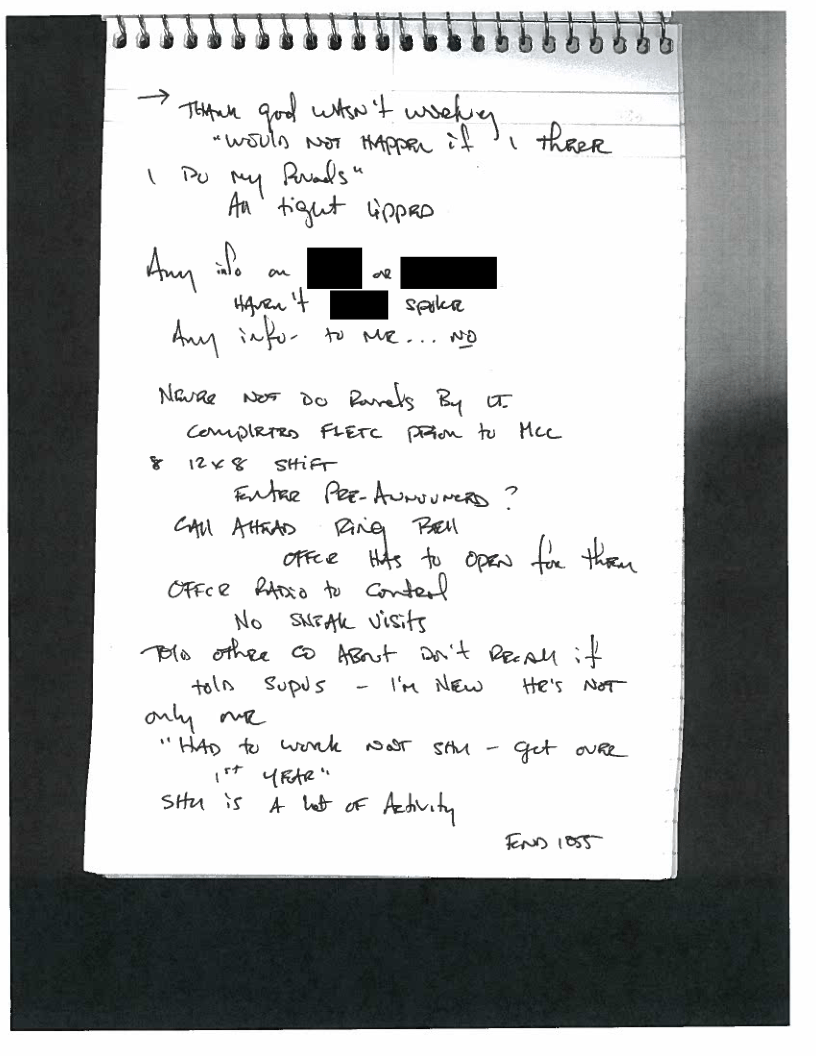 → THANK god WASN'T working
"WOULD NOT HAPPEN if I there
I DO my Rounds"
All tight lipped
Any info on or
HAVEN'T spoken
Any info - to ME... NO
NEVER NOT DO Rounds By LT.
COMPLETED FLETC PRIOR to MCC
8 12 x 8 SHIFT
ENTER PRE-ANNOUNCED?
CALL AHEAD RING BELL
OFFCR HAS to OPEN for them
OFFCR RADIO to Control
NO SNEAK VISITS
Told other CO ABOUT DON'T RECALL if
told SUPVS - I'M NEW HE'S NOT
only one
"HAD to work SHU - get over
1st YEAR"
SHU is A lot OF Activity
END 1055